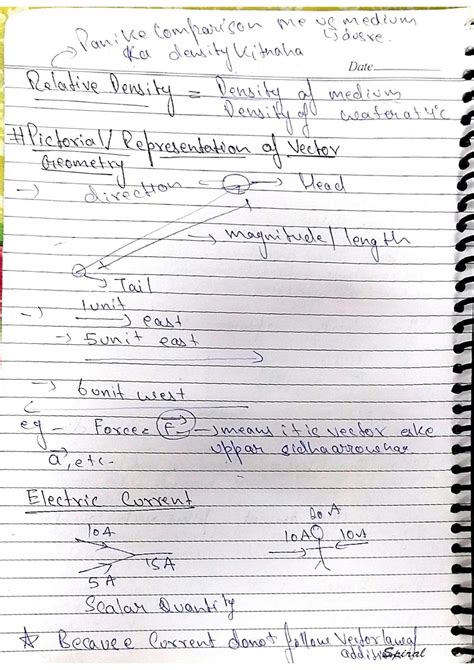 Pani ke comparison me us medium
ka density kitna ha
Date
Relative Density = Density of medium
Density of water at 4°c
# Pictorial / Representation of Vector
Geometry
→ direction ← → Head
→ magnitude / length
→ Tail
→ 1 unit
→ east
→ 5 unit east
→ 6 unit west
eg - Force = F → means it is vector eske
a, etc - uppar sidha arrow hai
Electric Current
10A
15A
5A
10A 10A
Scalar Quantity
☆ Because Current donot follow Vector law of
addition
Spiral